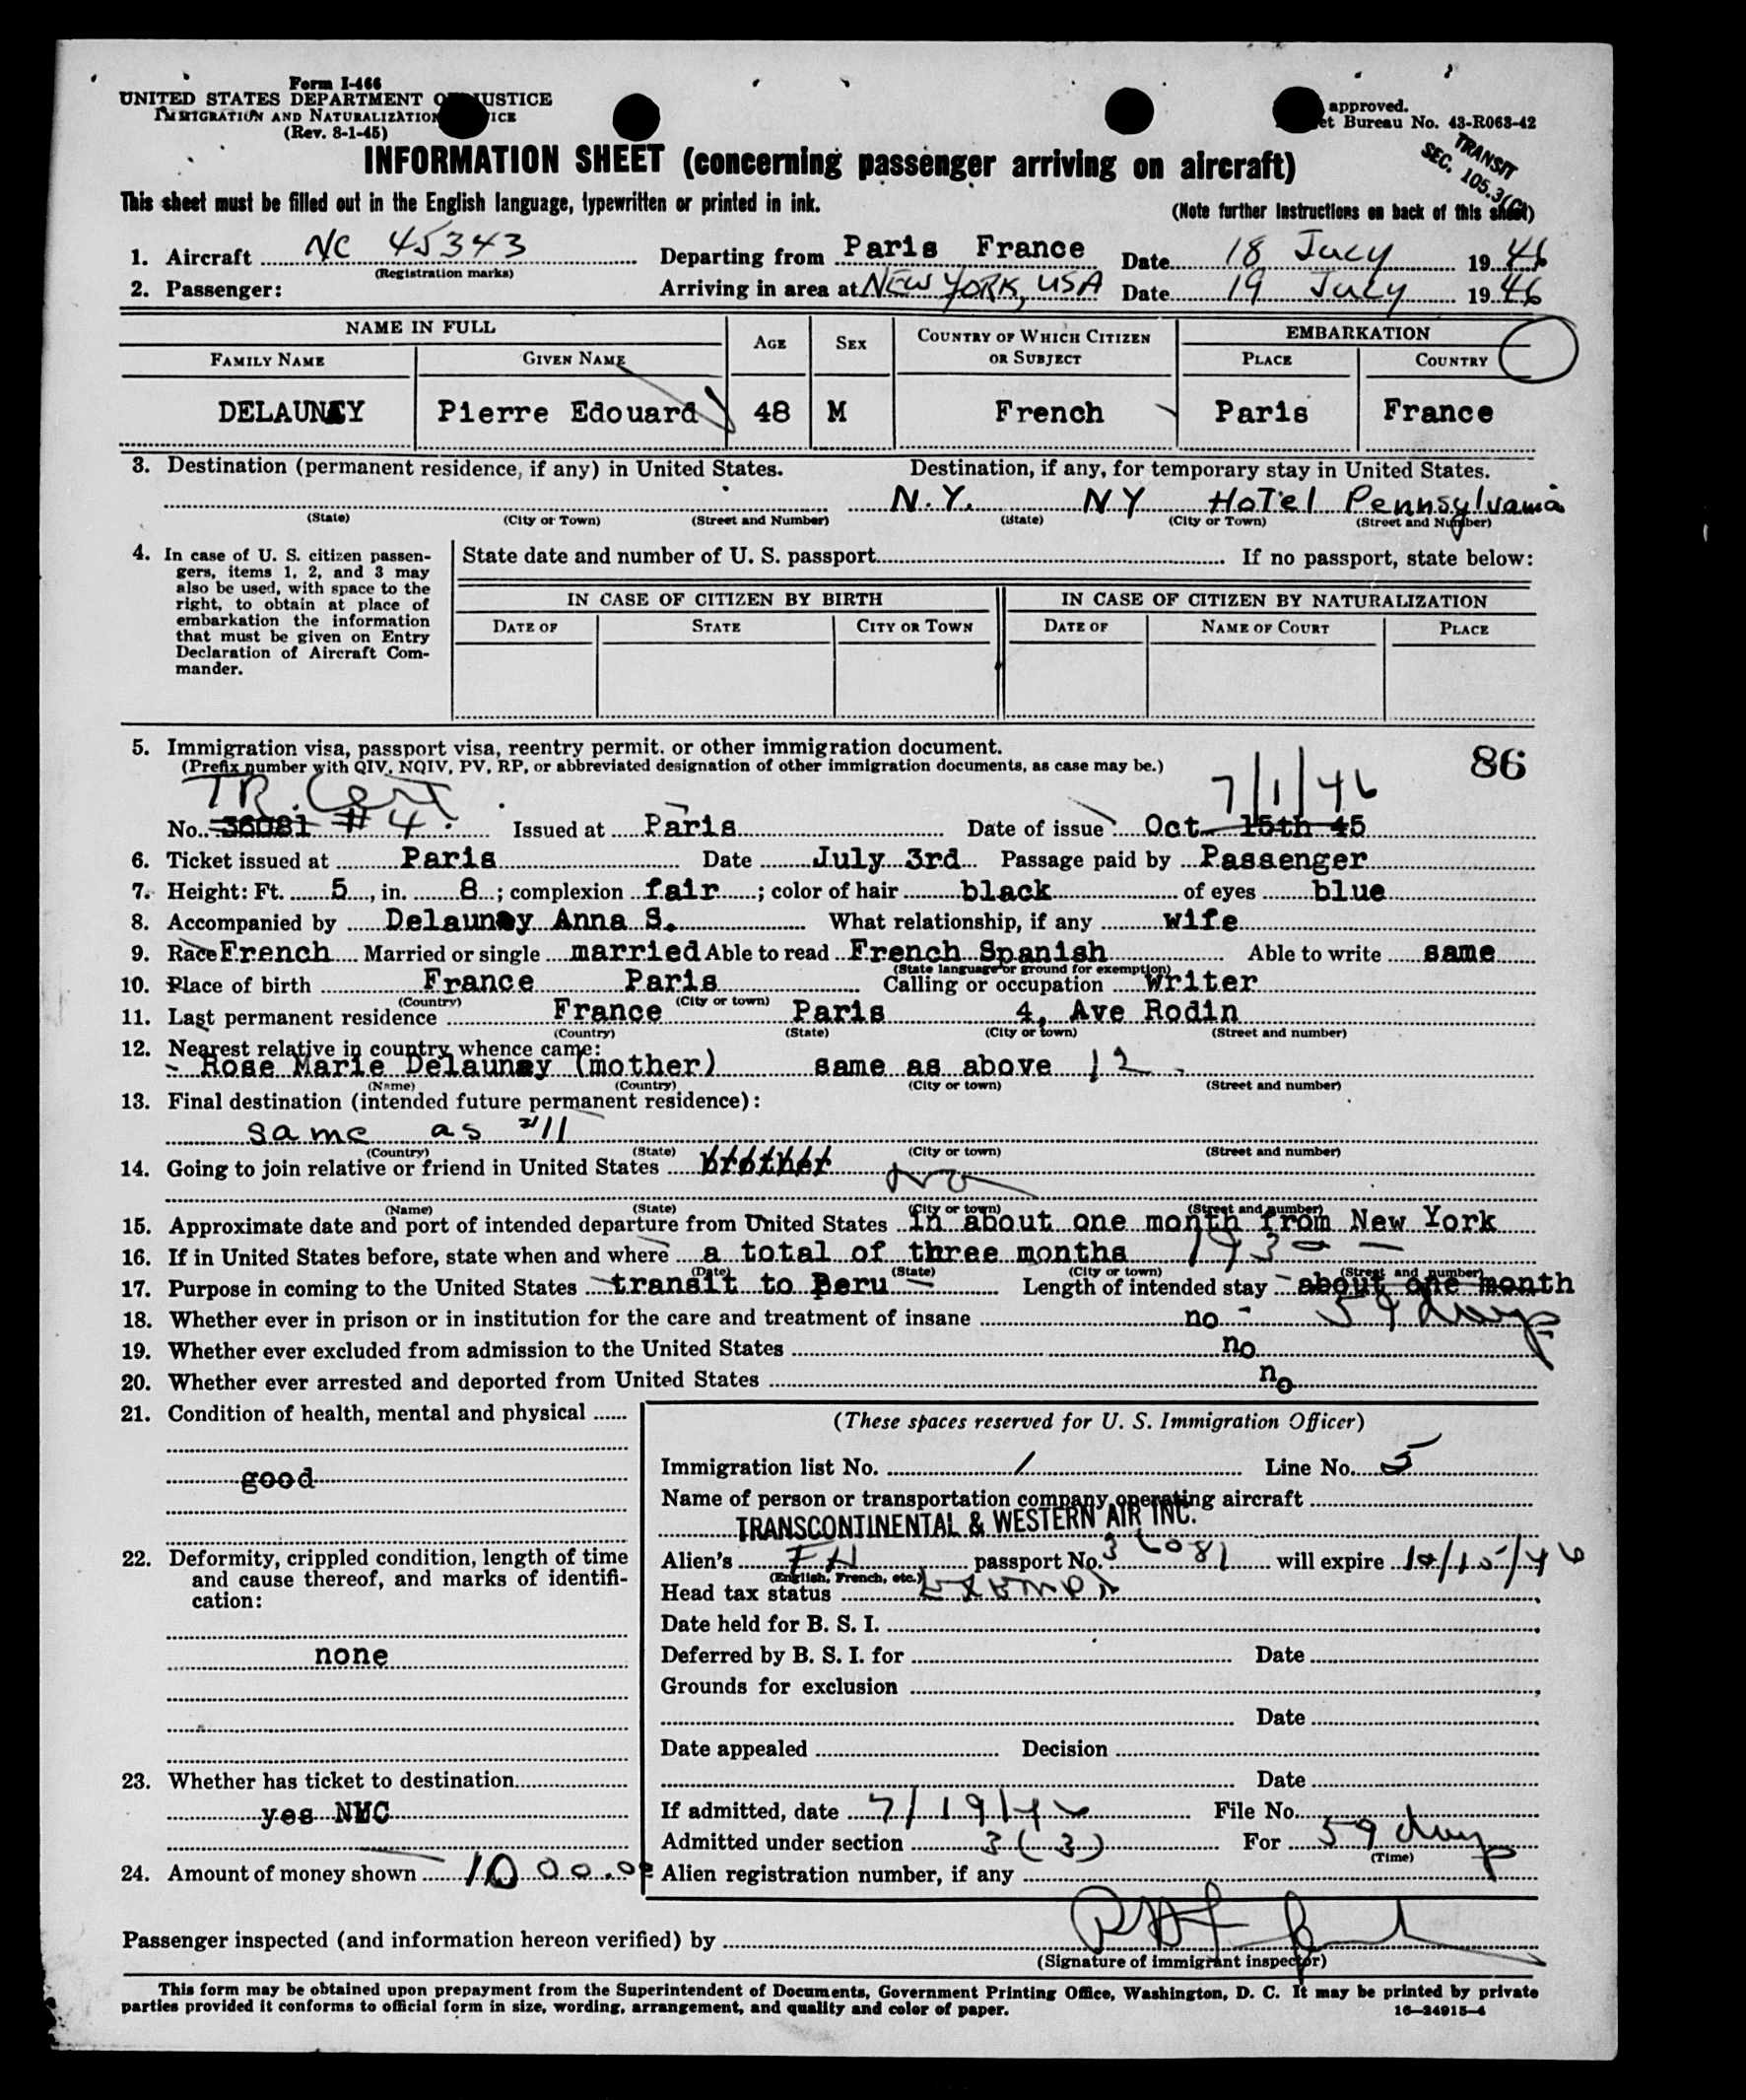 Form I-466
UNITED STATES DEPARTMENT OF JUSTICE
IMMIGRATION AND NATURALIZATION SERVICE
(Rev. 8-1-45)
approved.
et Bureau No. 43-R063-42
TRANSIT
SEC. 105.3
INFORMATION SHEET (concerning passenger arriving on aircraft)
This sheet must be filled out in the English language, typewritten or printed in ink.
(Note further instructions on back of this sheet)
1. Aircraft NC 45343 Departing from Paris France Date 18 July 1946
(Registration marks)
2. Passenger: Arriving in area at NEW YORK, USA Date 19 July 1946
NAME IN FULL AGE SEX COUNTRY OF WHICH CITIZEN OR SUBJECT EMBARKATION
FAMILY NAME GIVEN NAME PLACE COUNTRY
DELAUNEY Pierre Edouard 48 M French Paris France
3. Destination (permanent residence, if any) in United States. Destination, if any, for temporary stay in United States.
N.Y. NY HoTel Pennsylvania
(State) (City or Town) (Street and Number) (State) (City or Town) (Street and Number)
4. In case of U. S. citizen passen-
gers, items 1, 2, and 3 may
also be used, with space to the
right, to obtain at place of
embarkation the information
that must be given on Entry
Declaration of Aircraft Com-
mander.
State date and number of U. S. passport If no passport, state below:
IN CASE OF CITIZEN BY BIRTH IN CASE OF CITIZEN BY NATURALIZATION
DATE OF STATE CITY OR TOWN DATE OF NAME OF COURT PLACE
5. Immigration visa, passport visa, reentry permit. or other immigration document. 86
(Prefix number with QIV, NQIV, PV, RP, or abbreviated designation of other immigration documents, as case may be.)
TR. Cert. 7/1/46
No. 36081 # 4 Issued at Paris Date of issue Oct 15th 45
6. Ticket issued at Paris Date July 3rd Passage paid by Passenger
7. Height: Ft. 5, in. 8; complexion fair; color of hair black of eyes blue
8. Accompanied by Delauney Anna S. What relationship, if any wife
9. Race French Married or single married Able to read French Spanish Able to write same
(State language or ground for exemption)
10. Place of birth France Paris Calling or occupation writer
(Country) (City or town)
11. Last permanent residence France Paris 4, Ave Rodin
(Country) (State) (City or town) (Street and number)
12. Nearest relative in country whence came:
- Rose Marie Delauney (mother) same as above 12
(Name) (Country) (City or town) (Street and number)
13. Final destination (intended future permanent residence):
same as #11
(Country) (State) (City or town) (Street and number)
14. Going to join relative or friend in United States brother No
(Name) (State) (City or town) (Street and number)
15. Approximate date and port of intended departure from United States in about one month from New York
16. If in United States before, state when and where a total of three months 193
(Date) (State) (City or town) (Street and number)
17. Purpose in coming to the United States transit to Peru Length of intended stay about one month
59 days
18. Whether ever in prison or in institution for the care and treatment of insane no
19. Whether ever excluded from admission to the United States no
20. Whether ever arrested and deported from United States no
21. Condition of health, mental and physical
good
22. Deformity, crippled condition, length of time
and cause thereof, and marks of identifi-
cation:
none
23. Whether has ticket to destination
yes NYC
24. Amount of money shown 1000.00
(These spaces reserved for U. S. Immigration Officer)
Immigration list No. 1 Line No. 5
Name of person or transportation company operating aircraft
TRANSCONTINENTAL & WESTERN AIR INC.
Alien's FH passport No. 36081 will expire 10/15/46
(English, French, etc.)
Head tax status EXEMPT
Date held for B. S. I.
Deferred by B. S. I. for Date
Grounds for exclusion
Date
Date appealed Decision
Date
If admitted, date 7/19/46 File No.
Admitted under section 3(3) For 59 days
(Time)
Alien registration number, if any
Passenger inspected (and information hereon verified) by
(Signature of immigrant inspector)
This form may be obtained upon prepayment from the Superintendent of Documents, Government Printing Office, Washington, D. C. It may be printed by private
parties provided it conforms to official form in size, wording, arrangement, and quality and color of paper. 16—24915-4